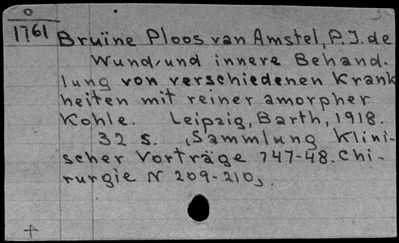 O
1761 Bruïne Ploos van Amstel, P.J. de
Wund- und innere Behand.
lung von verschiedenen Krank
heiten mit reiner amorpher
Kohle. Leipzig, Barth, 1918.
32 S. (Sammlung Klini-
scher Vorträge 747-48. Chi-
rurgie N 209-210)